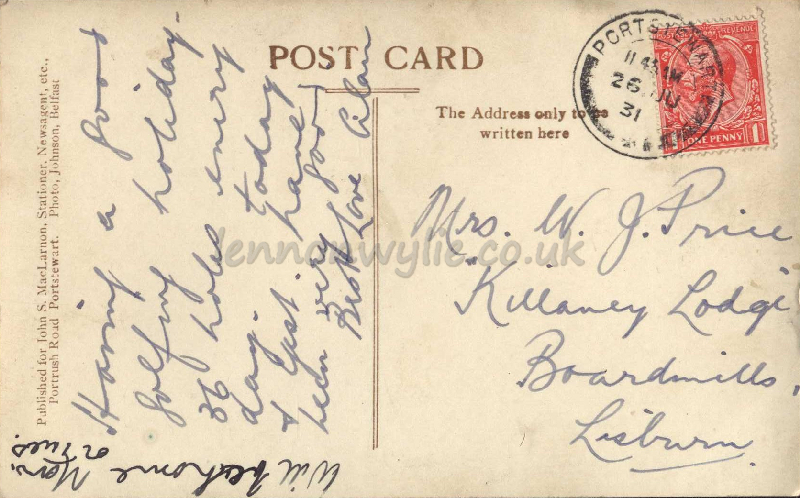 POST CARD
The Address only to be
written here
Published for John S. MacLarnon, Stationer, Newsagent, etc.,
Portrush Road Portstewart. Photo, Johnson, Belfast
Having a good
golfing holiday.
36 holes every
day. today
& last have
been very good
Best Love Alan
Will be home
Mon. or Tues.
Mrs. W. J. Price
"Killaney Lodge
Boardmills,
Lisburn
PORTSTEWART
11 45 AM
26 JU
31
POSTAGE REVENUE
ONE PENNY 1
lennonwylie.co.uk